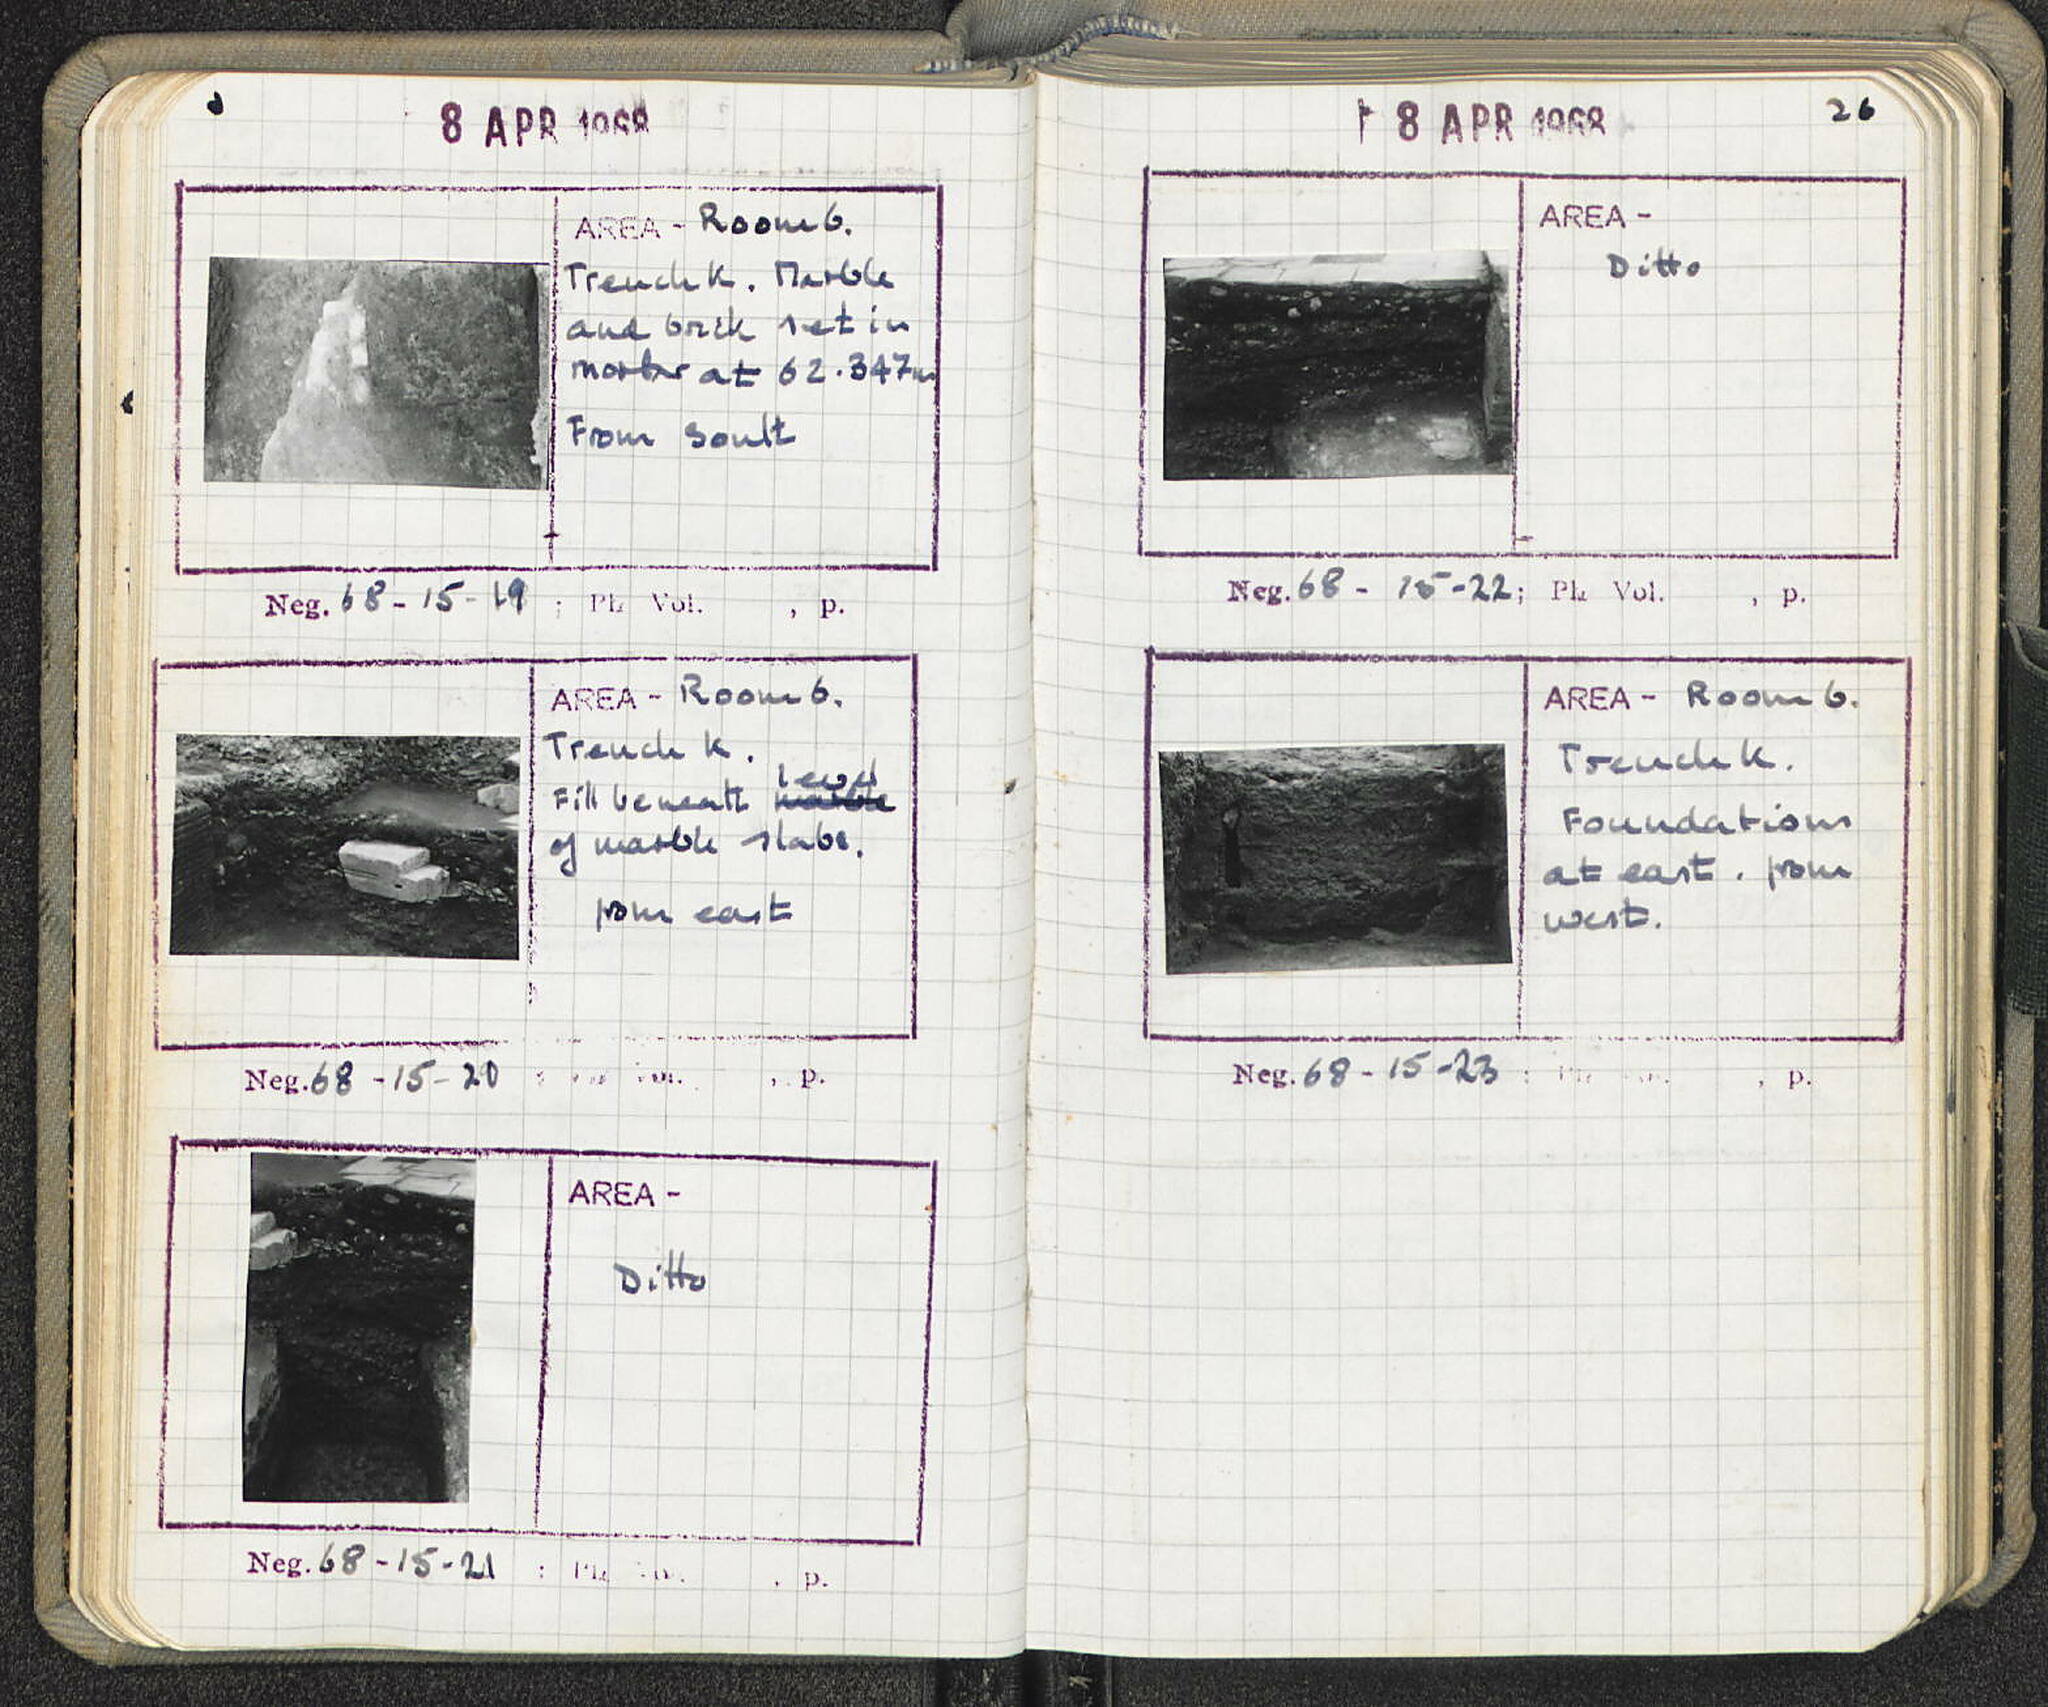 8 APR 1968
AREA - Room 6.
Trench K. Marble
and brick set in
mortar at 62.347m
From South
Neg. 68-15-19 ; Ph Vol. , p.
AREA - Room 6.
Trench K.
level
Fill beneath marble
of marble slabs.
from east
Neg. 68-15-20 : Vol. , p.
AREA -
Ditto
Neg. 68-15-21 : Ph , p.
8 APR 1968
26
AREA -
Ditto
Neg. 68-15-22; Ph Vol. , p.
AREA - Room 6.
Trench K.
Foundations
at east. from
west.
Neg. 68-15-23 : Ph , p.